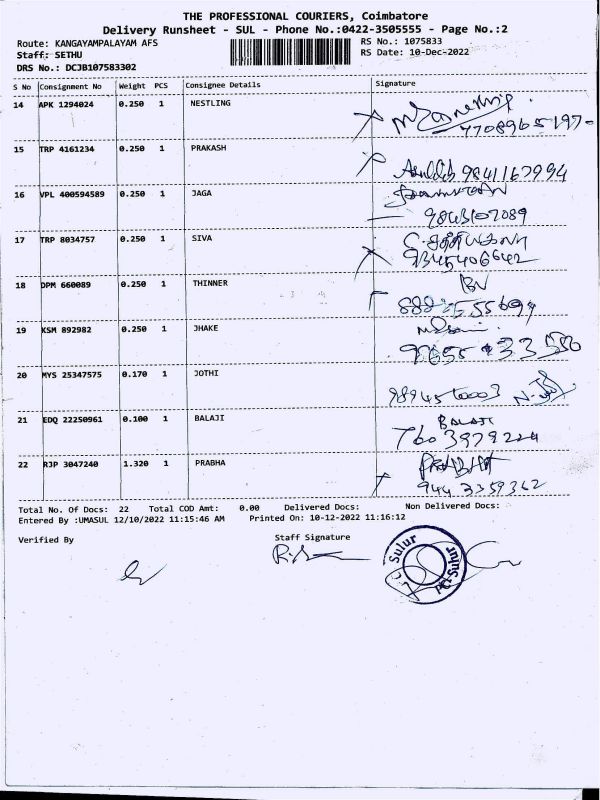 THE PROFESSIONAL COURIERS, Coimbatore
Delivery Runsheet - SUL - Phone No.:0422-3505555 - Page No.:2
Route: KANGAYAMPALAYAM AFS
RS No.: 1075833
Staff: SETHU
RS Date: 10-Dec-2022
DRS No.: DCJB107583302
S No Consignment No Weight PCS Consignee Details Signature
14 APK 1294024 0.250 1 NESTLING
7708965197
15 TRP 4161234 0.250 1 PRAKASH
9841167994
16 VPL 400594589 0.250 1 JAGA
9843107089
17 TRP 8034757 0.250 1 SIVA
9345406642
18 DPM 660089 0.250 1 THINNER
19 KSM 892982 0.250 1 JHAKE
20 MYS 25347575 0.170 1 JOTHI
21 EDQ 22250961 0.100 1 BALAJI BALAJI
7603979224
22 RJP 3047240 1.320 1 PRABHA PRABHA
944 3359362
Total No. Of Docs: 22 Total COD Amt: 0.00 Delivered Docs: Non Delivered Docs:
Entered By :UMASUL 12/10/2022 11:15:46 AM Printed On: 10-12-2022 11:16:12
Verified By Staff Signature
Sulur